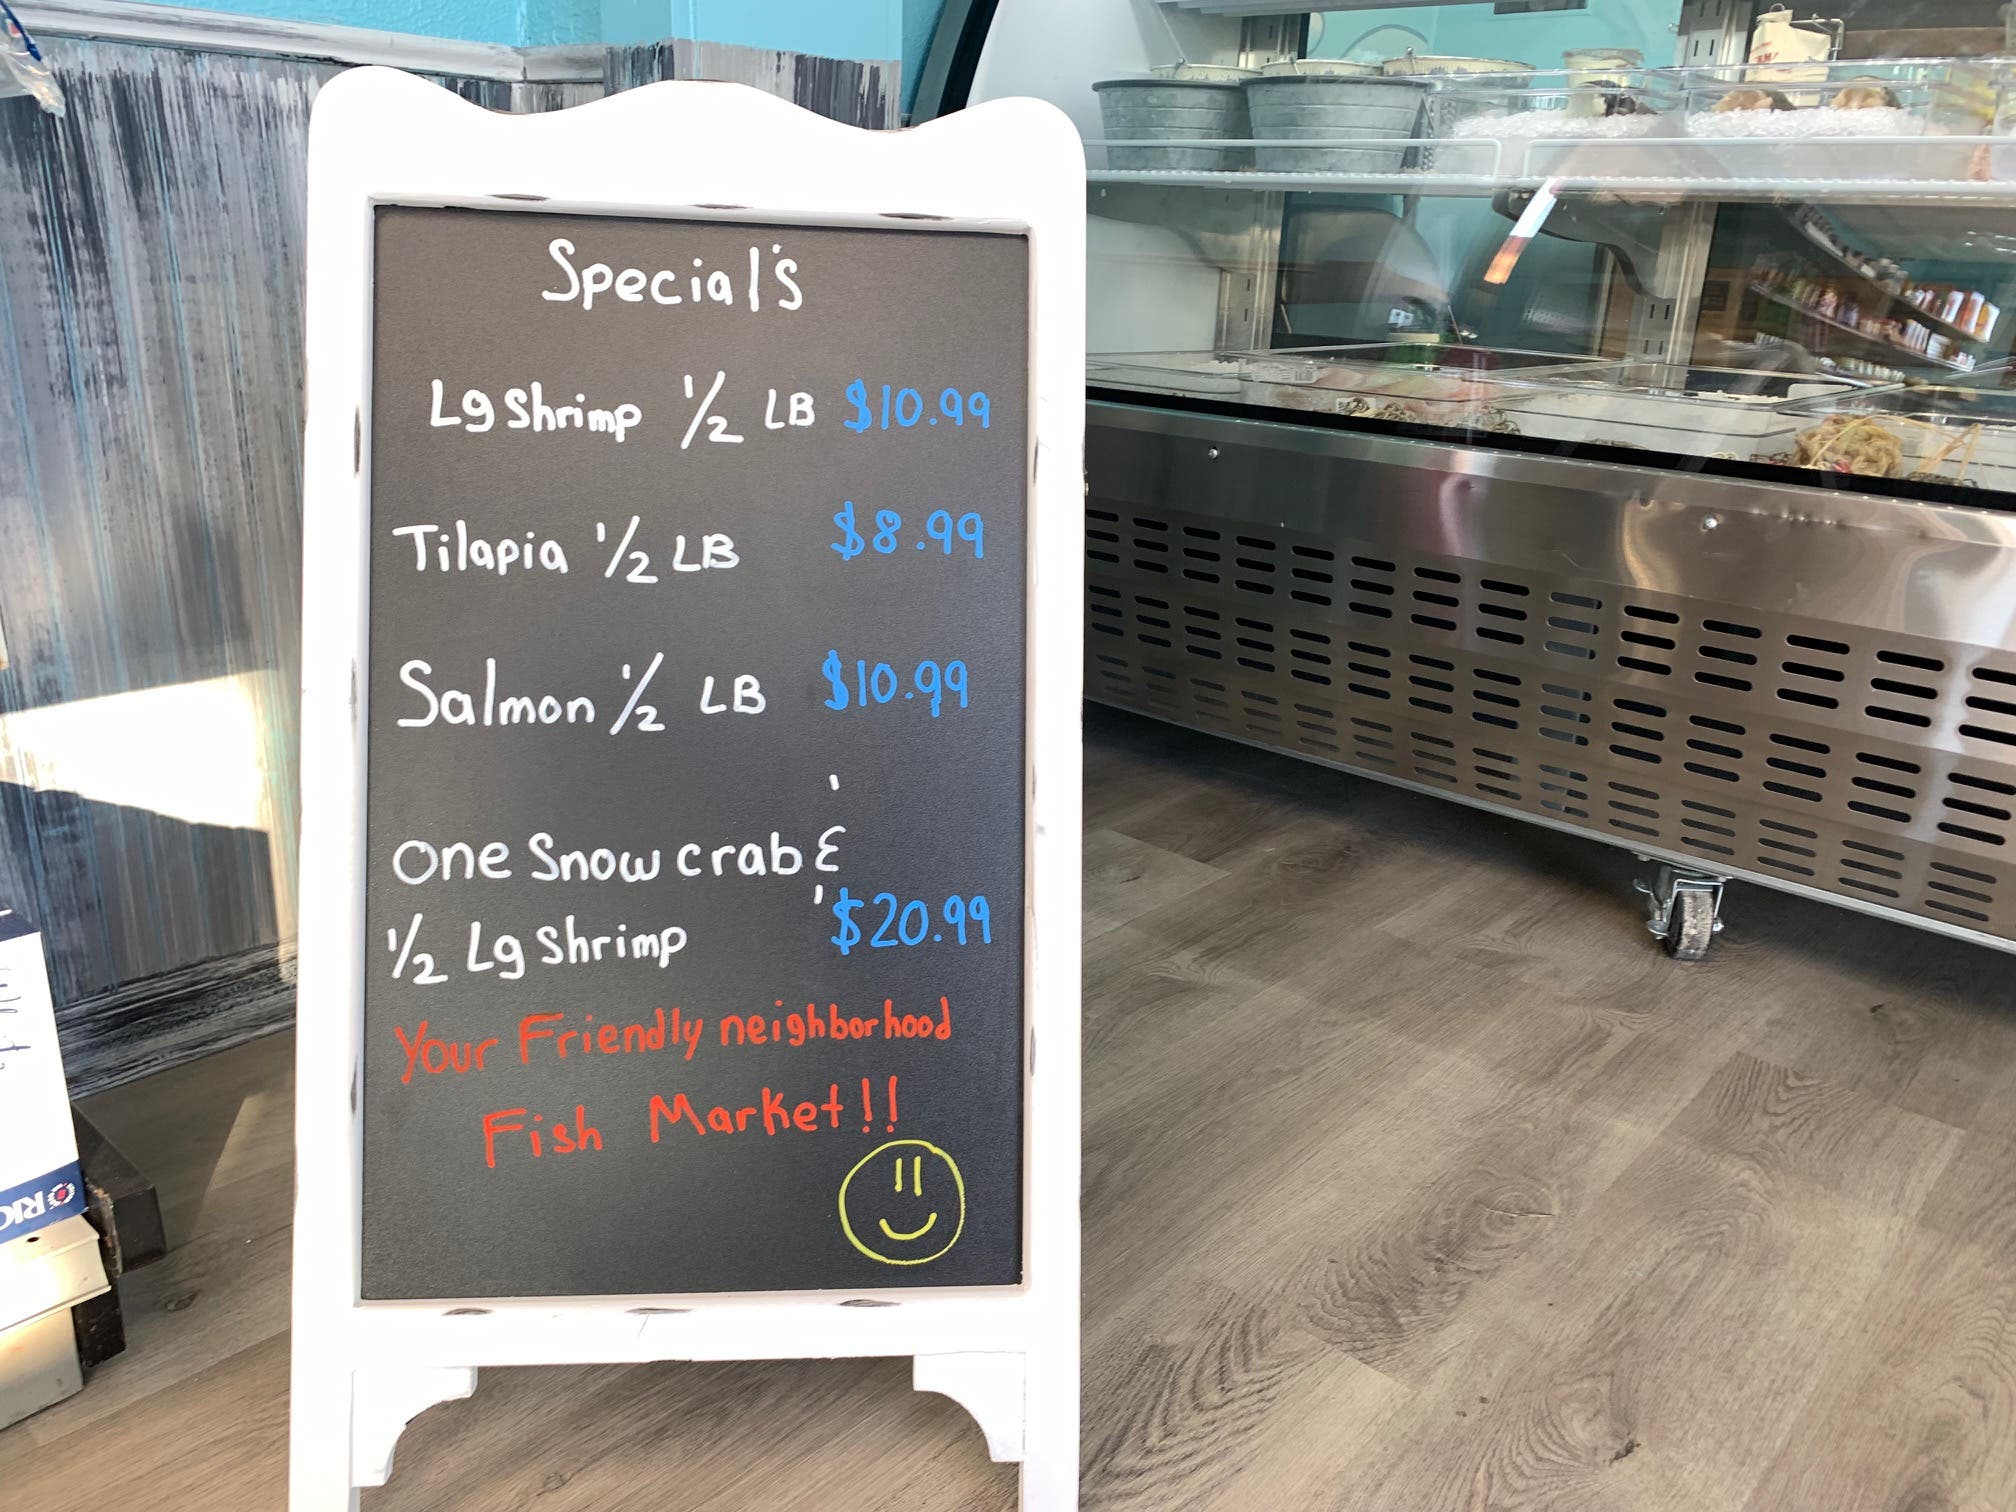 Special's
Lg Shrimp 1/2 LB $10.99
Tilapia 1/2 LB $8.99
Salmon 1/2 LB $10.99
One Snow crab &
1/2 Lg Shrimp $20.99
Your Friendly neighborhood
Fish Market!!